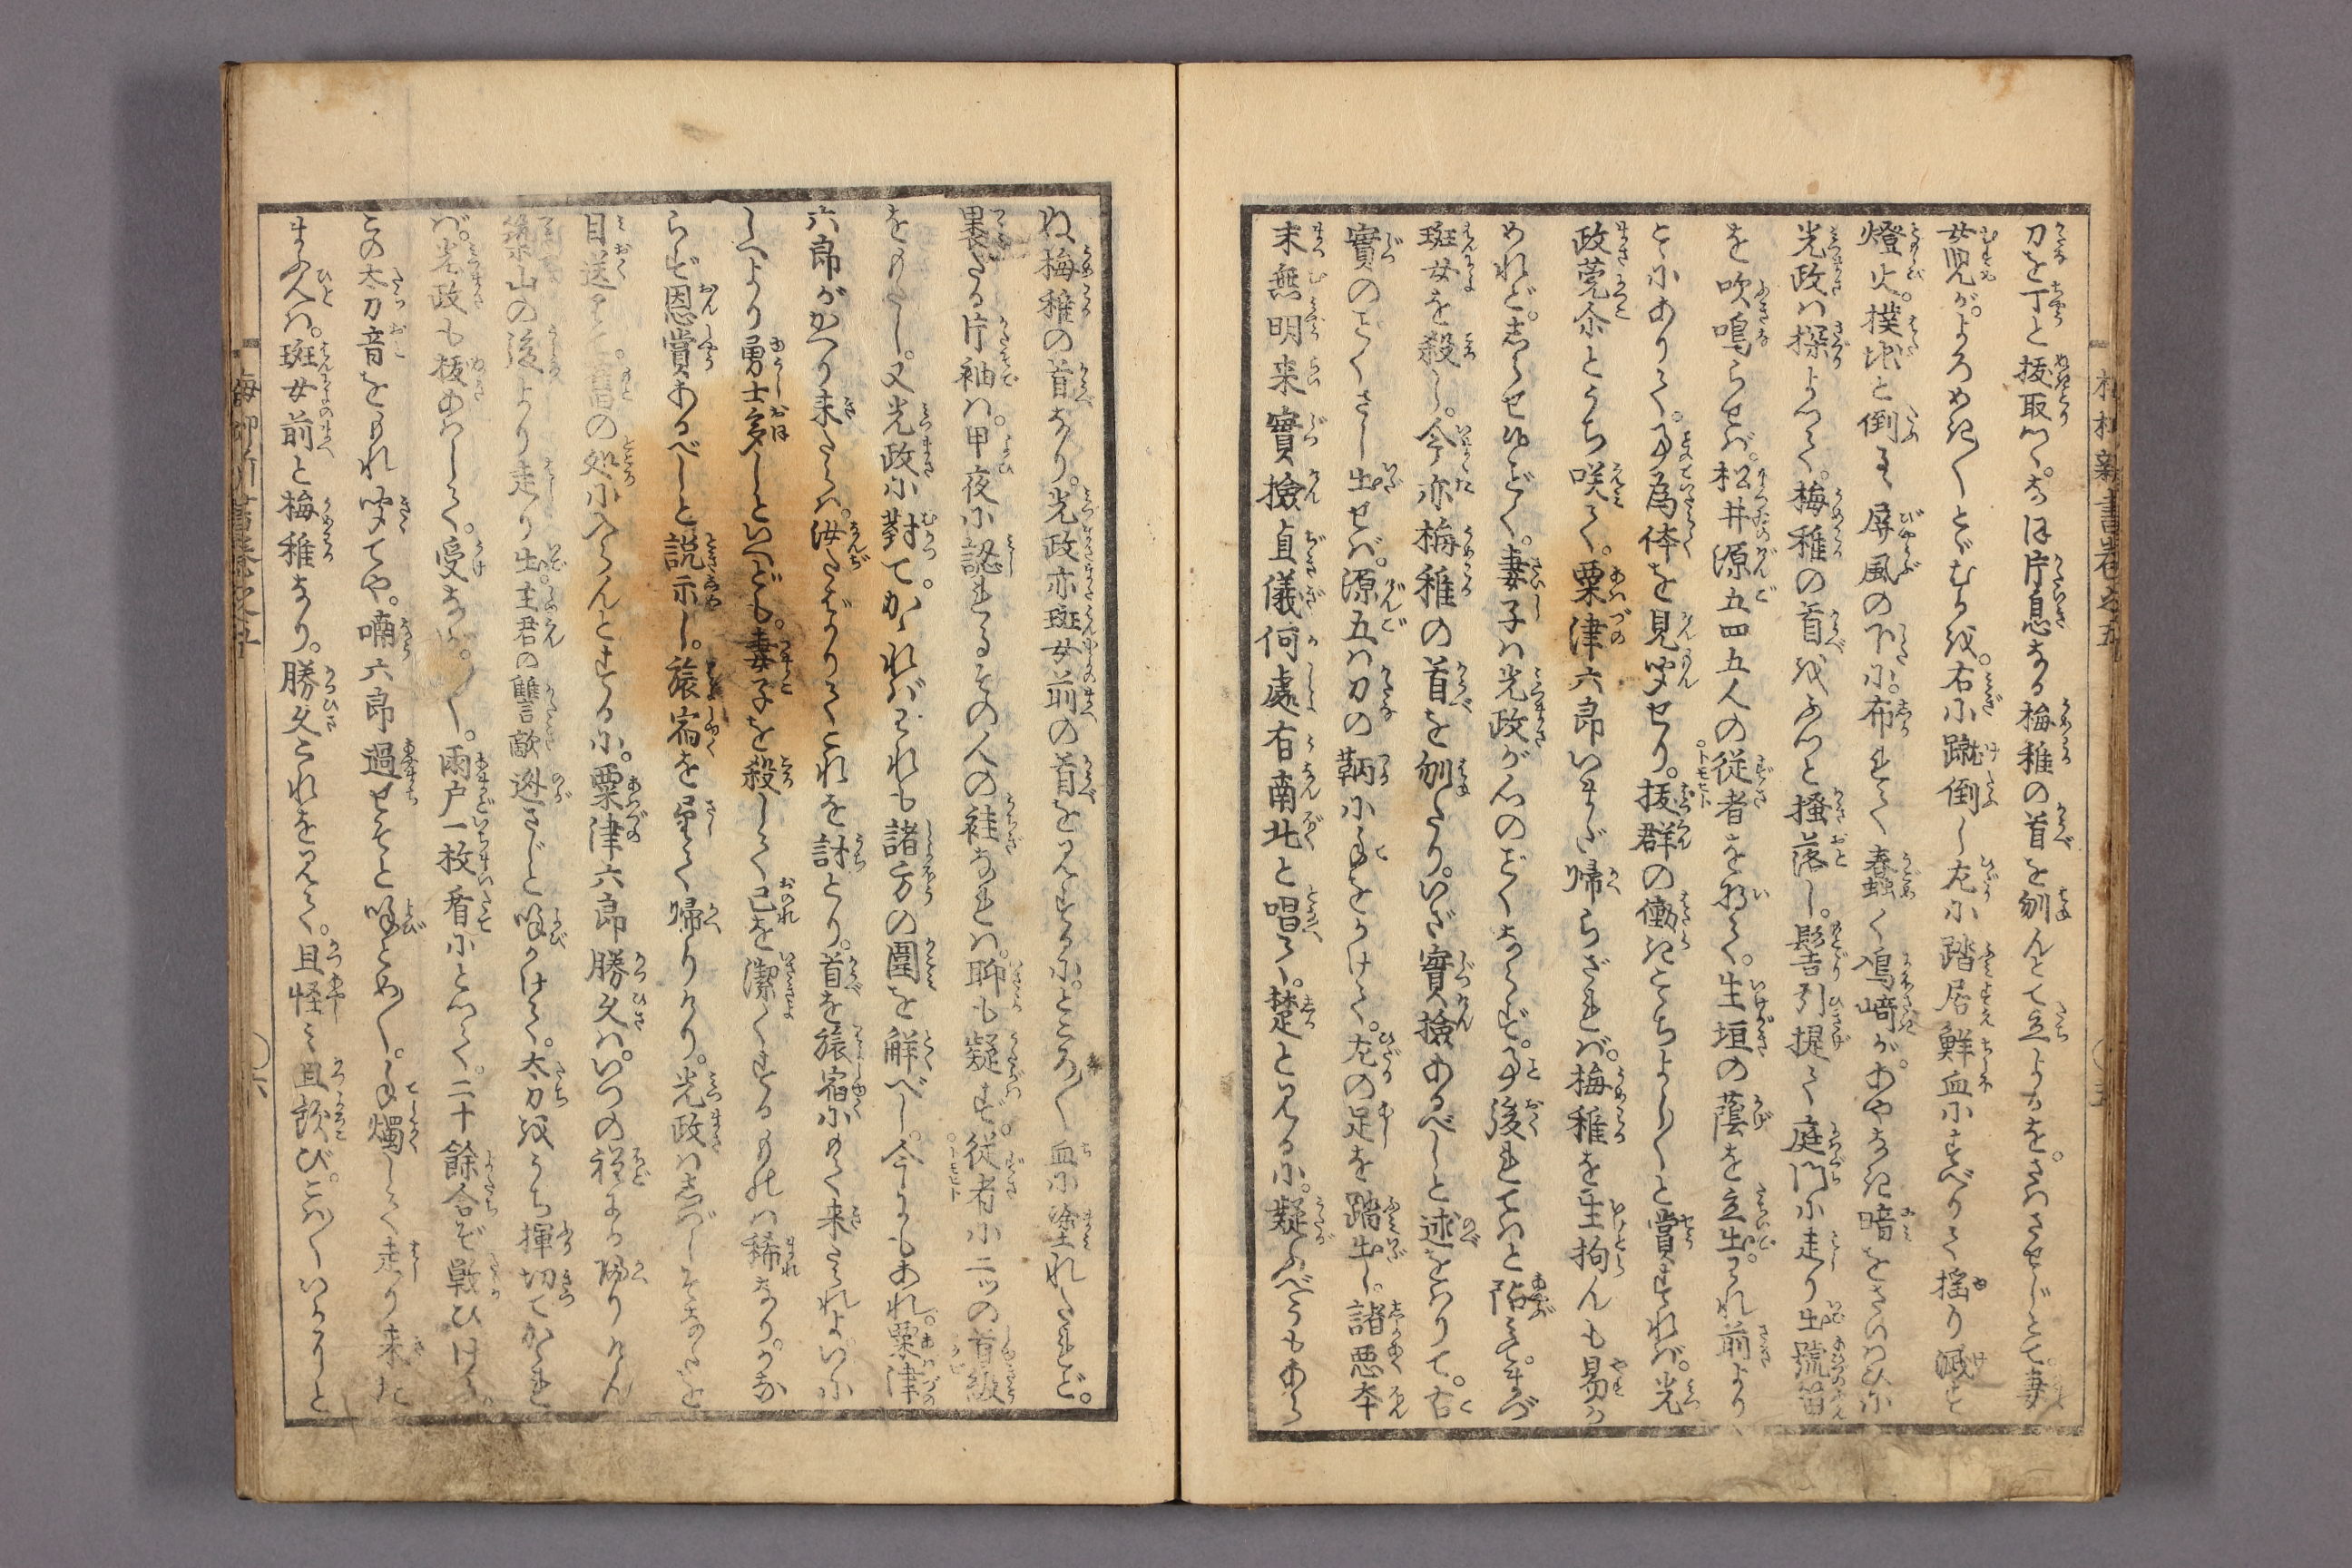 刀を丁と抜取つゝ。なほ片息なる梅稚の首を刎んとて立よるを。さはさせじとて。妻
女児が。よろめき〳〵とゞむるを。右に蹴倒し左に踏居鮮血にすべりて揺り滅す
燈火。撲地と倒るゝ屏風の下に。布れて蠢く嶋﨑が。あやなき暗をさいはひに
光政は探よつて。梅稚の首をふつと掻落し。髻引提て庭門に走り出號笛
を吹鳴らせば。松井源五四五人の従者を将て。生垣の蔭を立出。われ前より
とにありて。為体を見聞せり。抜群の働きこゝちよし〳〵と賞すれば。光
政莞尓とうち咲て。粟津六郎いまだ帰らざれば。梅稚を生拘んも易か
めれど。志らせ給ふごとく。妻子は光政が心のごとくならず。事後れてはと阽みて。まづ
班女を殺し。今亦梅稚の首を刎たり。いざ實撿あるべしと述をはりて。右
實のごとくさし出せば。源五は刀の鞆に手をかけて。左の足を踏出し。諸悪本
末無明来實撿貞儀何處有南北と唱て、楚と見るに。疑ふべうもあら
ぬ梅稚の首なり。光政亦班女前の首を見するに。ところ〴〵血に塗れたれど。
裹たる片袖は。甲夜に認れるその人の袿なれば。聊も疑ず。従者に二ッの首級
をもたし。又光政に對て。かゝればわれも諸方の圍を觧べし。今にもあれ。粟津
六郎がかへり来たらば。汝たばかりてこれを討とり。首を旅宿にもて来たられよ。いに
しへより勇士多しといへども。妻子を殺して己を潔くするものは稀なり。かな
らず恩賞あるべしと説示し。旅宿を望て帰りけり。光政は志ばしそなたを
目送りて。舊の処に入らんとするに。粟津六郎勝久は。いつの程にか帰りけん
築山の後より走り出。主君の讐敵迯さじと呼かけて。太刀を うち揮切てかゝれ
ば。光政も抜あはして。受ながし〳〵。雨戸一枚盾にとつて。二十餘合ぞ戦ひける。
この太刀音をもれ聞てや。喃六郎過せそと呼とめ〳〵。手燭して走り来た
まふ人は。班女前と梅稚なり。勝久これを見て。且怪み且歓び。こは〳〵いかにと